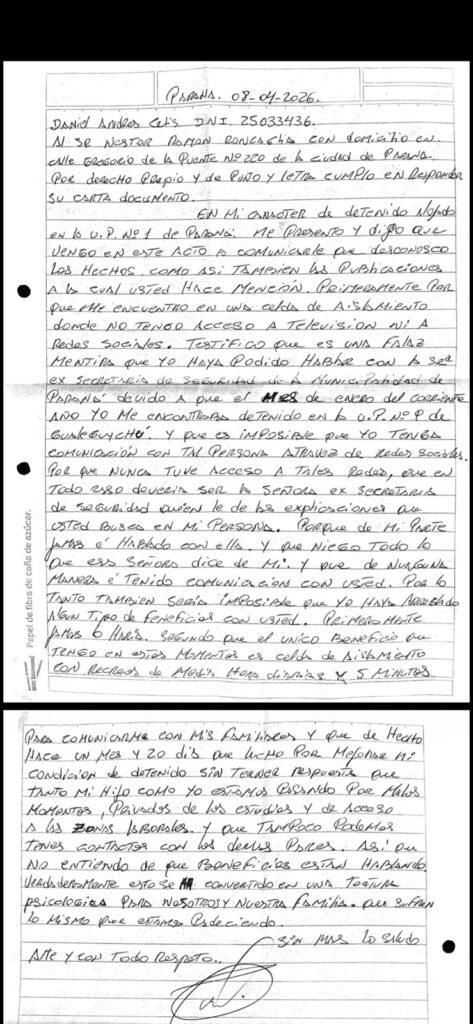 PARANA. 08-04-2026.
DANIEL ANDRES Celis DNI. 25033436.
Al SR NESTOR RAMON RONCAGLIA CON domicilio en
calle GREGORIO de la Puente Nº 220 de la ciudad de PARANA.
Por derecho Propio y de Puño y letra cumplo en Responder
su CARTA documento.
EN Mi CARACTER de detenido Alojado
en la U.P. Nº 1 de PARANA. Me Presento y digo que
VENGO en este ACTO a comunicarle que desconosco
los Hechos. como Asi TAMBIEN las Publicaciones
A la cual usted Hace Mención. Primeramente Por
que Me encuentro en una celda de AislAMIENTO
donde NO TENGO ACCESO A TELEVISION ni A
Redes Sociales. TESTIFICO que es una FALAZ
MENTIRA que Yo HAYA Podido HABLAR con la SRA
ex SECRETARIA de Seguridad de la Municipalidad de
PARANÁ devido A que el MES de ENERO del corriente
AÑO YO Me encontraba detenido en la U.P. Nº 9 de
GUALEGUYCHÚ. Y que es imposible que Yo TENGA
comunicación con TAL PERSONA ATRAVEZ de Redes Sociales.
Por que NUNCA TUVE ACCESO A TALES Redes, que en
Todo esso deveria ser la SEÑORA ex SECRETARIA
de seguridad quien le de las explicaciones que
usted Busca en Mi PERSONA. Porque de Mi PARTE
JAMAS é HABLADO con ella. Y que Niego Todo lo
que esa SEÑORA dice de Mi. Y que de NINGUNA
MANERA é TENIDO comunicación con usted. Por lo
TANTO TAMBIEN seria imposible que Yo HAYA Arreglado
Algun Tipo de Beneficios con usted. Primeramente
JAMAS lo HARIA. Segundo que el unico Beneficio que
TENGO en estos Momentos es celda de AislAMIENTO
con Recreos de Media Hora diarias y 5 Minutos
Papel de fibra de caña de azúcar.
PARA comunicarme con Mis FAMILIARES y que de Hecho
Hace un Mes y 20 dias que lucho Por Mejorar Mi
condicion de detenido sin Terner respuesta que
TANTO Mi Hijo como Yo estamos PASANDO Por MALOS
MOMENTOS, Privados de los estudios y de ACCESO
A las ZONAS laborales. y que TAMPOCO Podemos
Tener contactos con los demas Pares. Asi que
NO entiendo de que Beneficios estan HABLANDO.
Verdaderamente esto se HA convertido en una TORTURA
psicologica PARA NOSOTROS y NUESTRA FAMILIA. que sufren
lo Mismo que estamos Padeciendo.
Sin MAS lo saludo
Atte y con Todo Respeto..